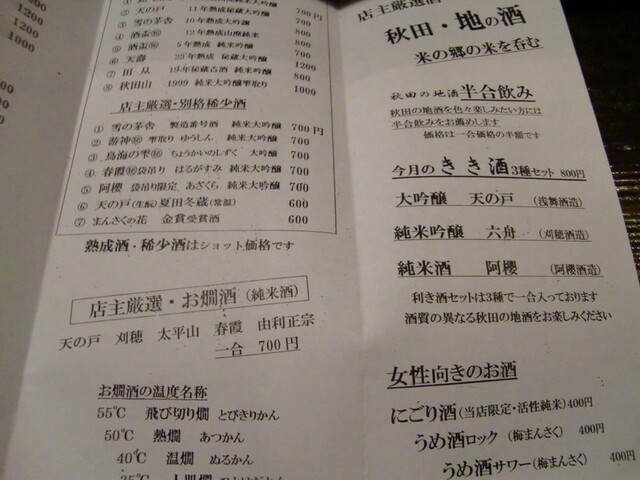 1200
1200
1000
② 天
純米大吟醸 700円
③ 雪の茅舎 10年熟成大吟醸 700
④ 酒盃㊙ 12年熟成山廃純米 800
⑤ 酒盃㊙ 5年熟成 純米吟醸 800
⑥ 天壽 秘蔵大吟醸 700
⑦ 田从 秘蔵古酒 純米大吟醸 1200
⑧ 秋田山 1999 純米大吟醸雫取り 800
1000
店主厳選・別格稀少酒
① 雪の茅舎 製造番号酒 純米大吟醸 700円
② 游神㊙ 雫取り ゆうしん 純米大吟醸 700
③ 鳥海の雫㊙ ちょうかいのしずく 大吟醸 700
④ 春霞㊙袋吊り はるがすみ 純米大吟醸 700
⑤ 阿櫻 袋吊り限定 あざくら 純米大吟醸 700
⑥ 天の戸(生酛)夏田冬蔵(常温) 600
⑦ まんさくの花 金賞受賞酒 600
熟成酒・稀少酒はショット価格です
店主厳選・お燗酒(純米酒)
天の戸 刈穂 太平山 春霞 由利正宗
一合 700円
お燗酒の温度名称
55℃ 飛び切り燗 とびきりかん
50℃ 熱燗 あつかん
40℃ 温燗 ぬるかん
35℃ 人肌燗
店主厳選酒
秋田・地の酒
米の郷の米を呑む
秋田の地酒半合飲み
秋田の地酒を色々楽しみたい方には
半合飲みをお薦めします
価格は一合価格の半額です
今月のきき酒3種セット 800円
大吟醸 天の戸 (浅舞酒造)
純米吟醸 六舟 (刈穂酒造)
純米酒 阿櫻 (阿櫻酒造)
利き酒セットは3種で一合入っております
酒質の異なる秋田の地酒をお楽しみください
女性向きのお酒
にごり酒(当店限定・活性純米)400円
うめ酒ロック (梅まんさく) 400円
うめ酒サワー(梅まんさく) 400円